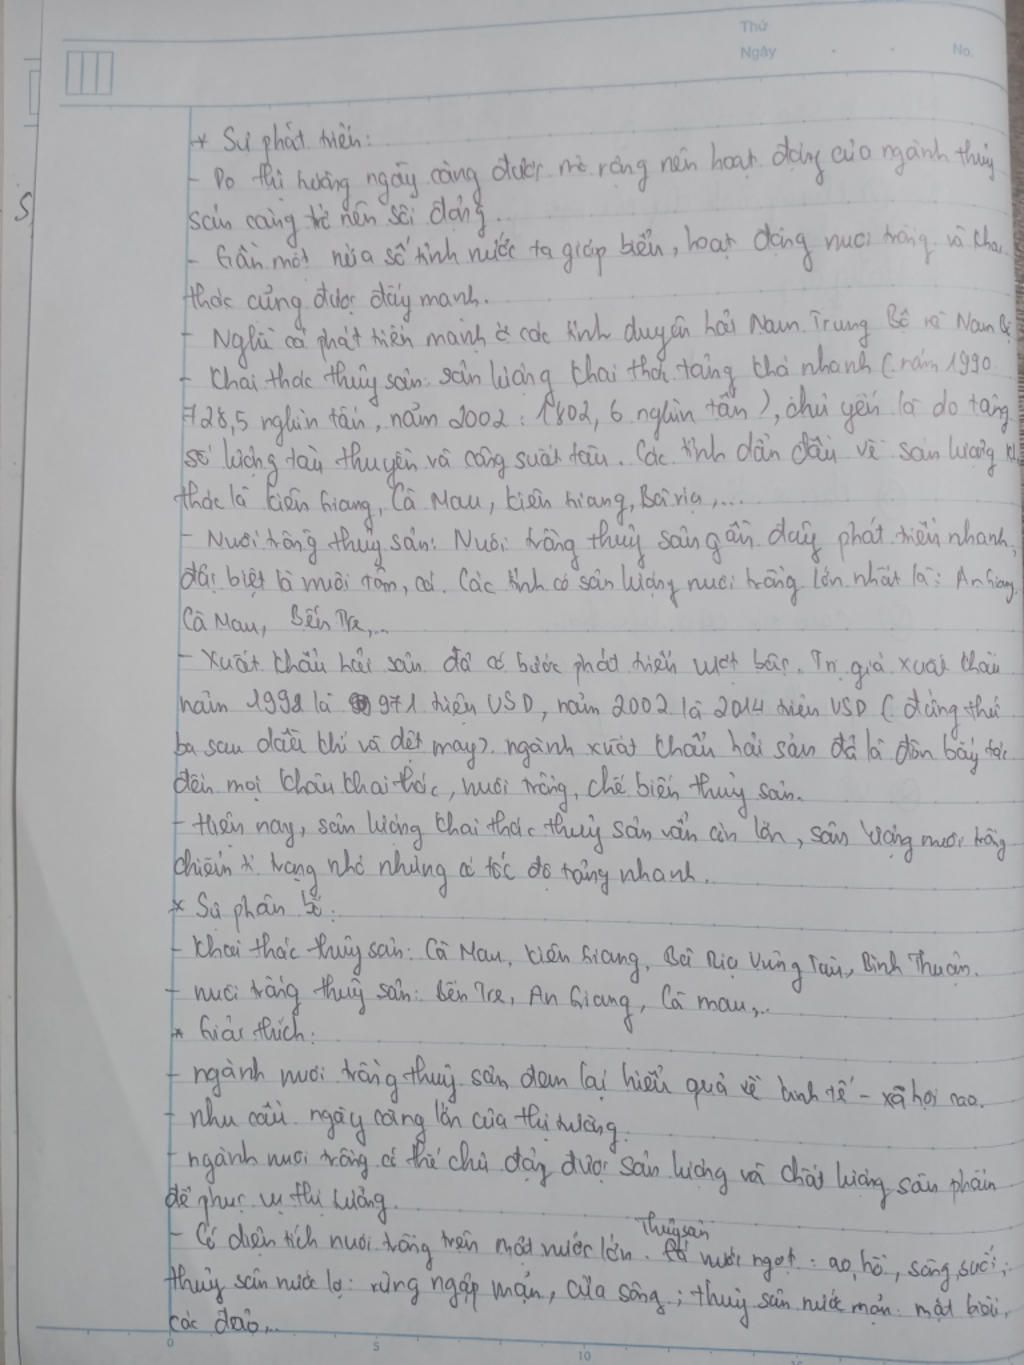 Thứ
Ngày . . No.
* Sự phát triển:
- Do thị trường ngày càng được mở rộng nên hoạt động của ngành thuỷ
sản càng trở nên sôi động.
- Gần một nửa số tỉnh nước ta giáp biển, hoạt động nuôi trồng và khai
thác cũng được đẩy mạnh.
- Nghề cá phát triển mạnh ở các tỉnh duyên hải Nam Trung Bộ và Nam Bộ
- Khai thác thuỷ sản: sản lượng khai thác tăng khá nhanh (năm 1990
728,5 nghìn tấn, năm 2002: 1802,6 nghìn tấn), chủ yếu là do tăng
số lượng tàu thuyền và công suất tàu. Các tỉnh dẫn đầu về sản lượng
thác là Kiên Giang, Cà Mau, Kiên Giang, Bà rịa,...
- Nuôi trồng thuỷ sản: Nuôi trồng thuỷ sản gần đây phát triển nhanh,
đặc biệt là nuôi tôm, cá. Các tỉnh có sản lượng nuôi trồng lớn nhất là: An Giang,
Cà Mau, Bến Tre,...
- Xuất khẩu hải sản đã có bước phát triển vượt bậc. Trị giá xuất khẩu
năm 1999 là 971 triệu USD, năm 2002 là 2014 triệu USD (đứng thứ
ba sau dầu khí và dệt may). ngành xuất khẩu hải sản đã là đòn bẩy tác
đến mọi khâu khai thác, nuôi trồng, chế biến thuỷ sản.
- Hiện nay, sản lượng khai thác thuỷ sản vẫn còn lớn, sản lượng nuôi trồng
chiếm tỉ trọng nhỏ nhưng có tốc độ tăng nhanh.
* Sự phân bố:
- Khai thác thuỷ sản: Cà Mau, Kiên Giang, Bà Rịa Vũng Tàu, Bình Thuận.
- nuôi trồng thuỷ sản: Bến Tre, An Giang, Cà mau,..
* Giải thích:
- ngành nuôi trồng thuỷ sản đem lại hiệu quả về kinh tế - xã hội cao.
- nhu cầu ngày càng lớn của thị trường.
- ngành nuôi trồng có thể chủ động được sản lượng và chất lượng sản phẩm
để phục vụ thị trường.
- Có diện tích nuôi trồng trên mặt nước lớn. Thuỷ sản nước ngọt: ao, hồ, sông, suối;
thuỷ sản nước lợ: rừng ngập mặn, cửa sông; thuỷ sản nước mặn: mặt biển,
các đảo,...
0 5 10